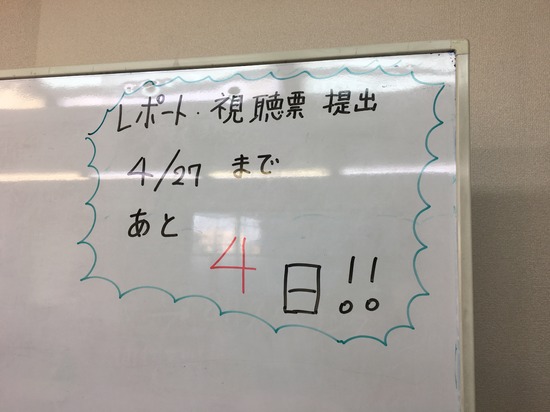 レポート・視聴票 提出
4/27 まで
あと
4日!!